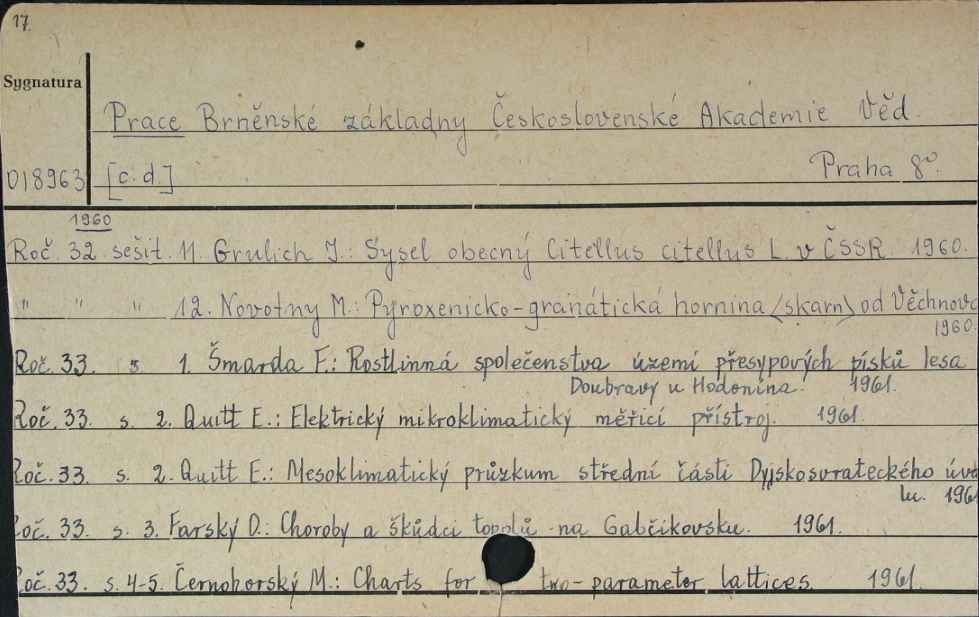 17.
Sygnatura
Prace Brněnské základny Československé Akademie Věd.
018963 [c.d.] Praha 8°.
1960
Roč. 32. sešit. 11. Grulich J.: Sysel obecný Citellus citellus L. v ČSSR 1960.
" " " 12. Novotny M.: Pyroxenicko-granátická hornina (skarn) od Věchnova
1960.
Roč. 33. s. 1. Šmarda F.: Rostlinná společenstva území přesypových písků lesa
Doubravy u Hodonína. 1961.
Roč. 33. s. 2. Quitt E.: Elektrický mikroklimatický měřicí přístroj. 1961.
Roč. 33. s. 2. Quitt E.: Mesoklimatický průzkum střední části Dyjskosvrateckého úva
lu. 1961
Roč. 33. s. 3. Farský O.: Choroby a škůdci topolů na Gabčikovsku. 1961.
Roč. 33. s. 4-5. Černohorský M.: Charts for two-parameter lattices. 1961.